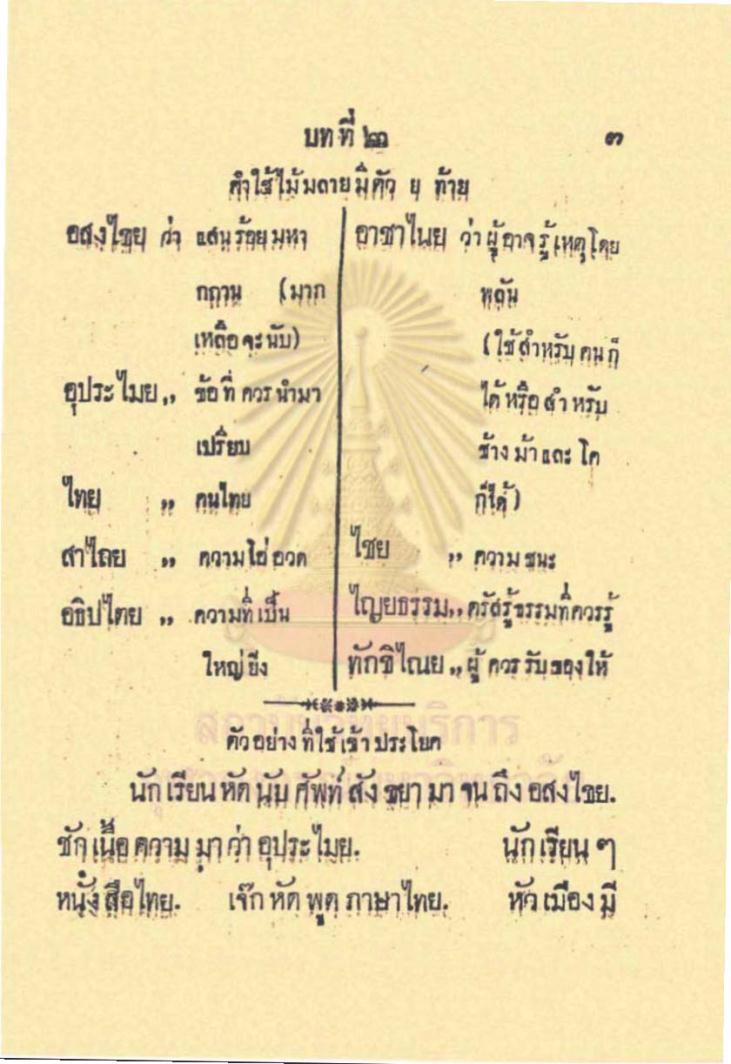 บทที่ ๒
๓
คำใช้ไม้มลายมีตัว ย ท้าย
อสงไขย ว่า แสนร้อยมหา
กถาน (มาก
เหลือจะนับ)
อุปรไมย ,, ข้อที่ควรนำมา
เปรียบ
ไทย ,, คนไทย
สาไถย ,, ความโอ่อวด
อธิปไตย ,, ความที่เป็น
ใหญ่ยิ่ง
อาชาไนย ว่า ผู้อาจรู้เหตุโดย
พลัน
(ใช้สำหรับคนก็
ได้หรือสำหรับ
ช้างม้าและโค
ก็ได้)
ไชย ,, ความชนะ
ไญยธรรม ,, ตรัสรู้ธรรมที่ควรรู้
ทักขิไณย ,, ผู้ควรรับของให้
ตัวอย่างที่ใช้เข้าประโยค
นักเรียนหัดนับศัพท์สังขยามาจนถึงอสงไขย.
ชักเนื้อความมาว่าอุประไมย. นักเรียน ๆ
หนังสือไทย. เจ๊กหัดพูดภาษาไทย. หัวเมืองมี
สถาบันวิทยบริการ